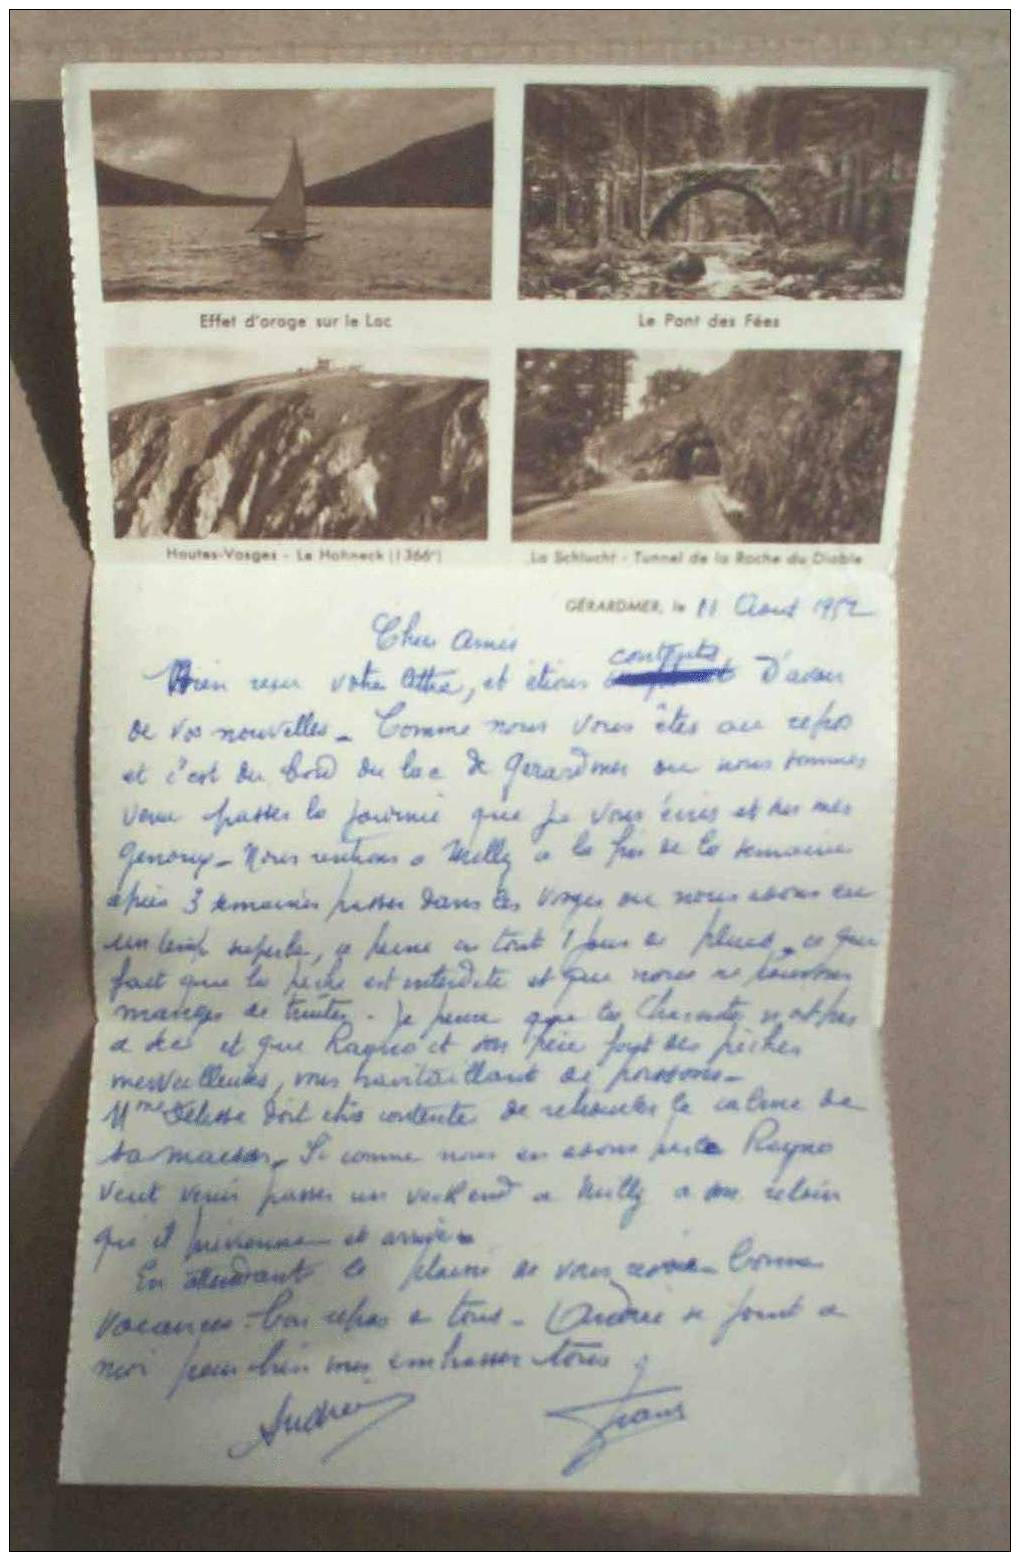 Effet d'orage sur le Lac
Le Pont des Fées
Hautes-Vosges - Le Hohneck (1366m)
La Schlucht - Tunnel de la Roche du Diable
GÉRARDMER, le 11 Aout 1952
Chers Amis
Bien reçu votre lettre, et étions contents D'avoir
de vos nouvelles - Comme nous vous êtes au repos
et c'est du bord du lac de Gerardmer ou nous sommes
venu passer la journée que je vous écris et sur mes
genoux - Nous rentrons a Milly a la fin de la semaine
après 3 semaines passer dans les Vosges ou nous avons eu
un temps superbe, a peine en tout 1 jour de pluie - ce qui
fait que la pêche est interdite et que nous ne pouvons
manger de truites - Je pense que la Charente n'est pas
a sec et que Ragno et son père font des pêches
merveilleuses, vous ravitaillant de poissons -
Mme doit être contente de retrouver le calme de
sa maison - Si comme nous en avons parlé Ragno
veut venir passer un weekend a Milly a son retour
qu'il et arrive -
En attendant le plaisir de vous revoir bonnes
vacances - bon repos a tous - Andrée se joint a
moi pour bien vous embrasser tous
Andrée
Frans